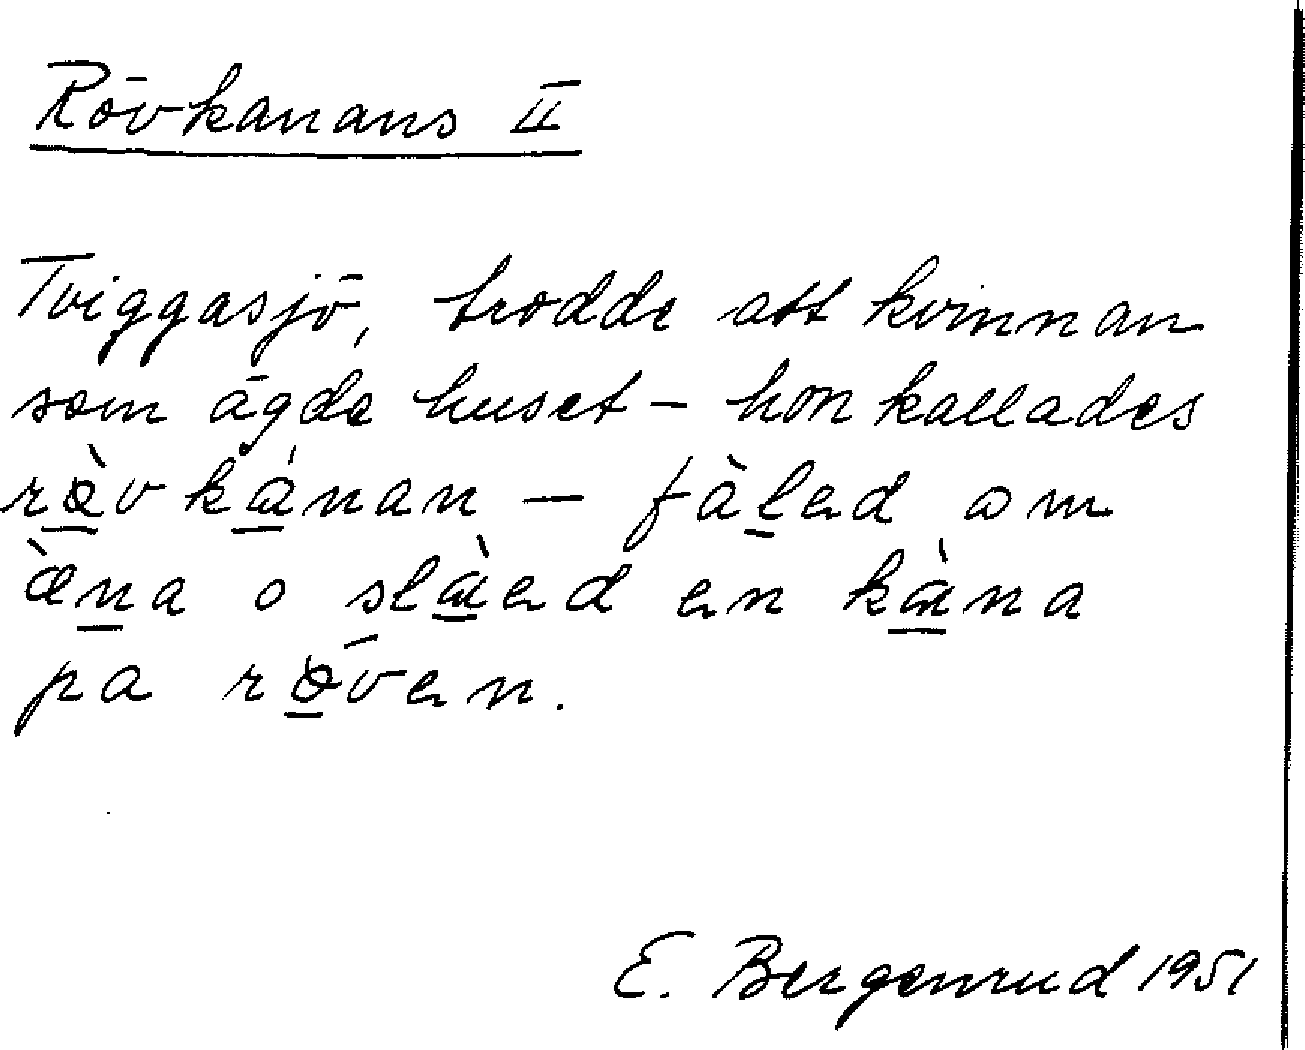 Rövkanans II
Tviggasjö, trodde att kvinnan
som ägde huset – hon kallades
rø̀vkánan – fàled om
æ̀na o slàed en kàna
pa rø̀ven.
E. Bergenrud 1951